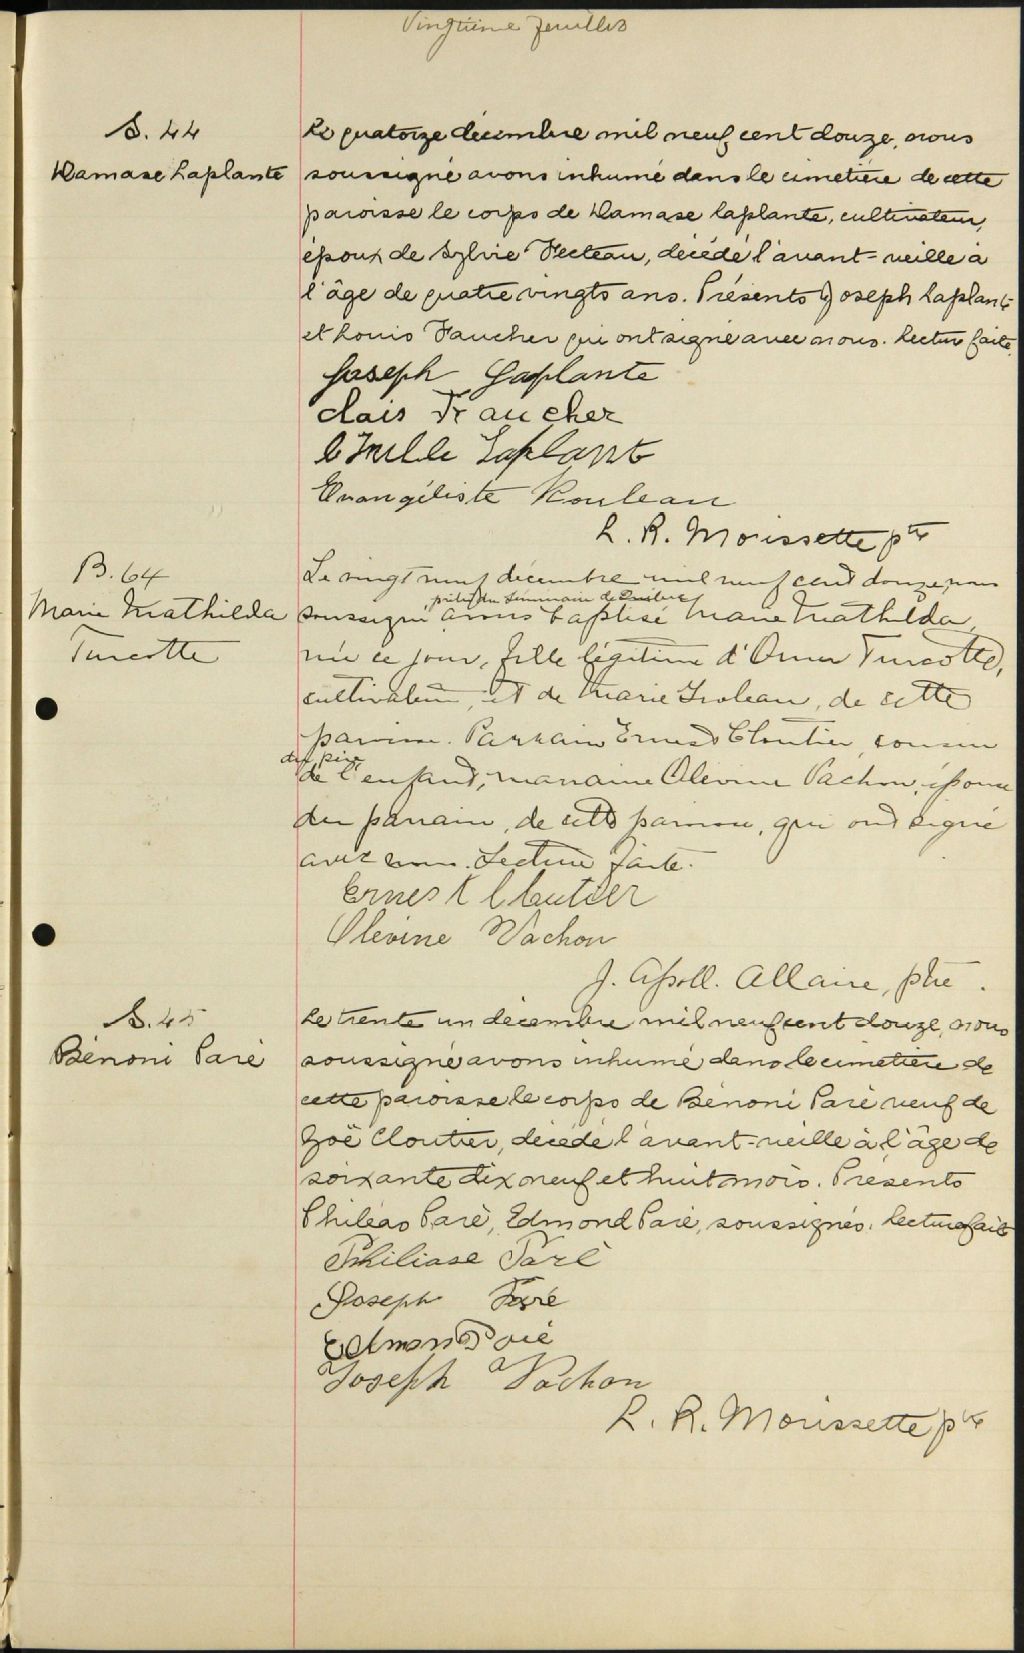 Vingtième feuillet
S. 44
Damase Laplante
Le quatorze décembre mil neuf cent douze, nous
soussigné avons inhumé dans le cimetière de cette
paroisse le corps de Damase Laplante, cultivateur,
époux de Sylvie Fecteau, décédé l'avant-veille à
l'âge de quatre vingts ans. Présents Joseph Laplante
et Louis Faucher qui ont signé avec nous. Lecture faite.
Joseph Laplante
Faucher
Laplante
Evangéliste Rouleau
L. R. Morissette ptre
B. 64
Marie Mathilda
Turcotte
Le vingt neuf décembre mil neuf cent douze, nous
prêtre du Séminaire de Québec
soussigné avons baptisé Marie Mathilda,
née ce jour, fille légitime d'Omer Turcotte,
cultivateur, et de Marie, de cette
paroisse. Parrain Ernest Cloutier, cousin
du père
de l'enfant, marraine Olevine Vachon, épouse
du parrain, de cette paroisse, qui ont signé
avec nous. Lecture faite.
Ernest Cloutier
Olevine Vachon
J. Apoll. Allaire, ptre.
S. 45
Bénoni Paré
Le trente un décembre mil neuf cent douze, nous
soussigné avons inhumé dans le cimetière de
cette paroisse le corps de Bénoni Paré veuf de
Zoë Cloutier, décédé l'avant-veille à l'âge de
soixante dix neuf et huit mois. Présents
Philéas Paré, Edmond Paré, soussignés. Lecture faite
Philiase Paré
Joseph Paré
Edmond Paré
Joseph Vachon
L. R. Morissette ptre